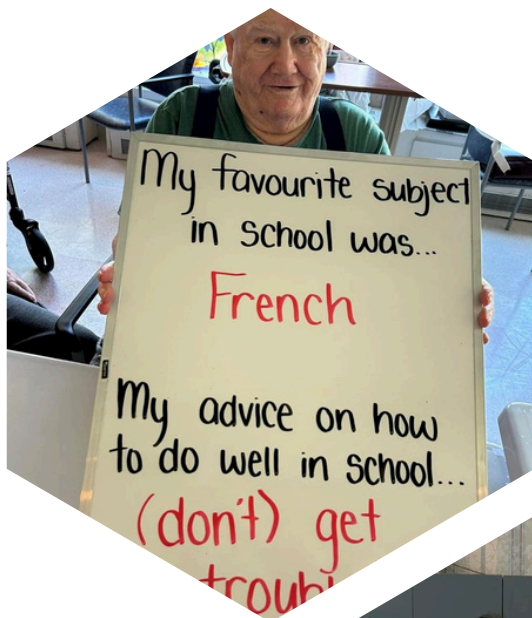 My favourite subject
in school was...
French
My advice on how
to do well in school...
(don't) get